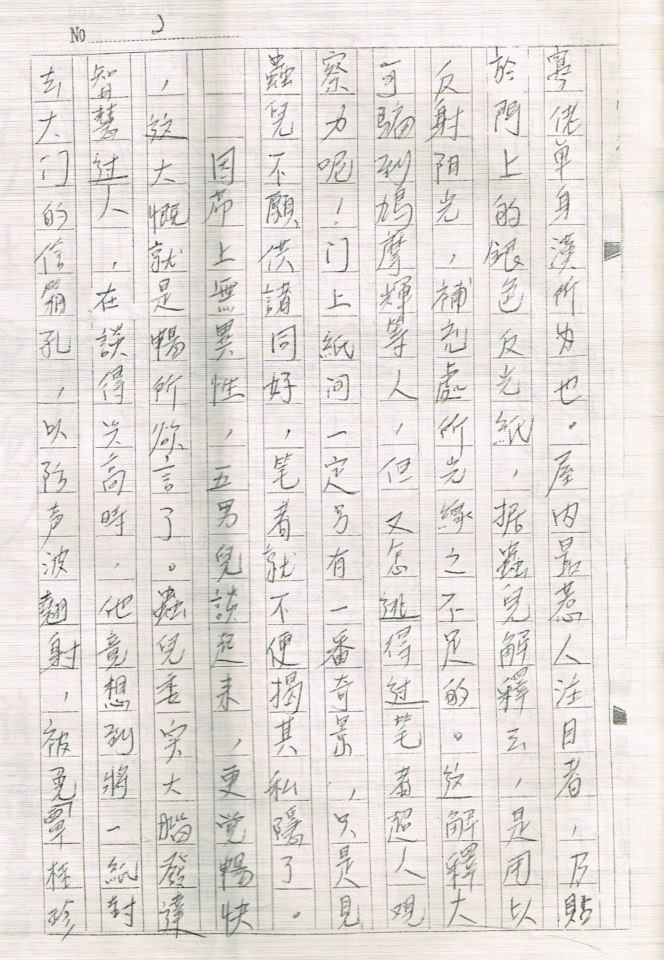 No 2
寡佬单身漢所为也。屋内最惹人注目者,乃貼
於門上的銀色反光紙,据蟲兒解釋云,是用以
反射阳光,補充處所光線之不足的。这解釋大
可騙到鳩摩輝等人,但又怎逃得过笔者超人观
察力呢!门上紙间一定另有一番奇景,只是見
蟲兒不願供諸同好,笔者就不便揭其私隱了。
因席上無異性,五男兒談起来,更觉暢快
,这大慨就是暢所欲言了。蟲兒委实大腦發達
智慧过人,在談得兴高時,他竟想到將一紙封
去大门的信箱孔,以防声波射,被免